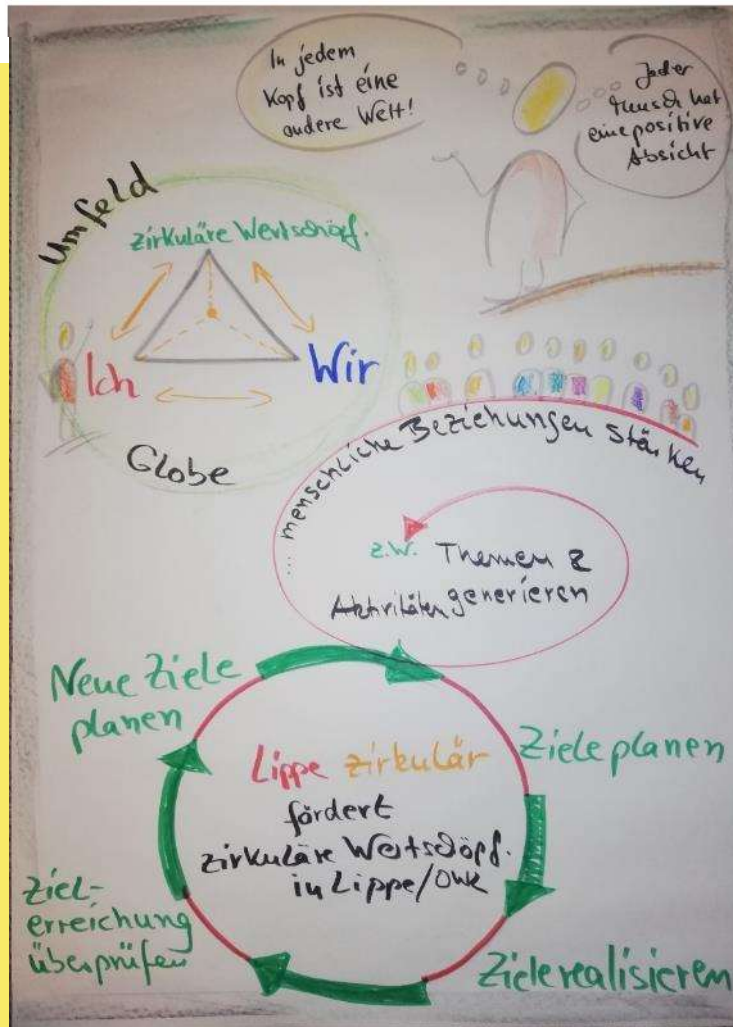 In jedem
Kopf ist eine
andere Welt!
Jeder
Mensch hat
eine positive
Absicht
Umfeld
zirkuläre Wertschöpf.
Ich
Wir
Globe
... menschliche Beziehungen stärken
z.W. Themen &
Aktivitäten generieren
Neue Ziele
planen
Ziele planen
Lippe zirkulär
fördert
zirkuläre Wertschöpf.
in Lippe/OWL
Ziel-
erreichung
überprüfen
Ziele realisieren